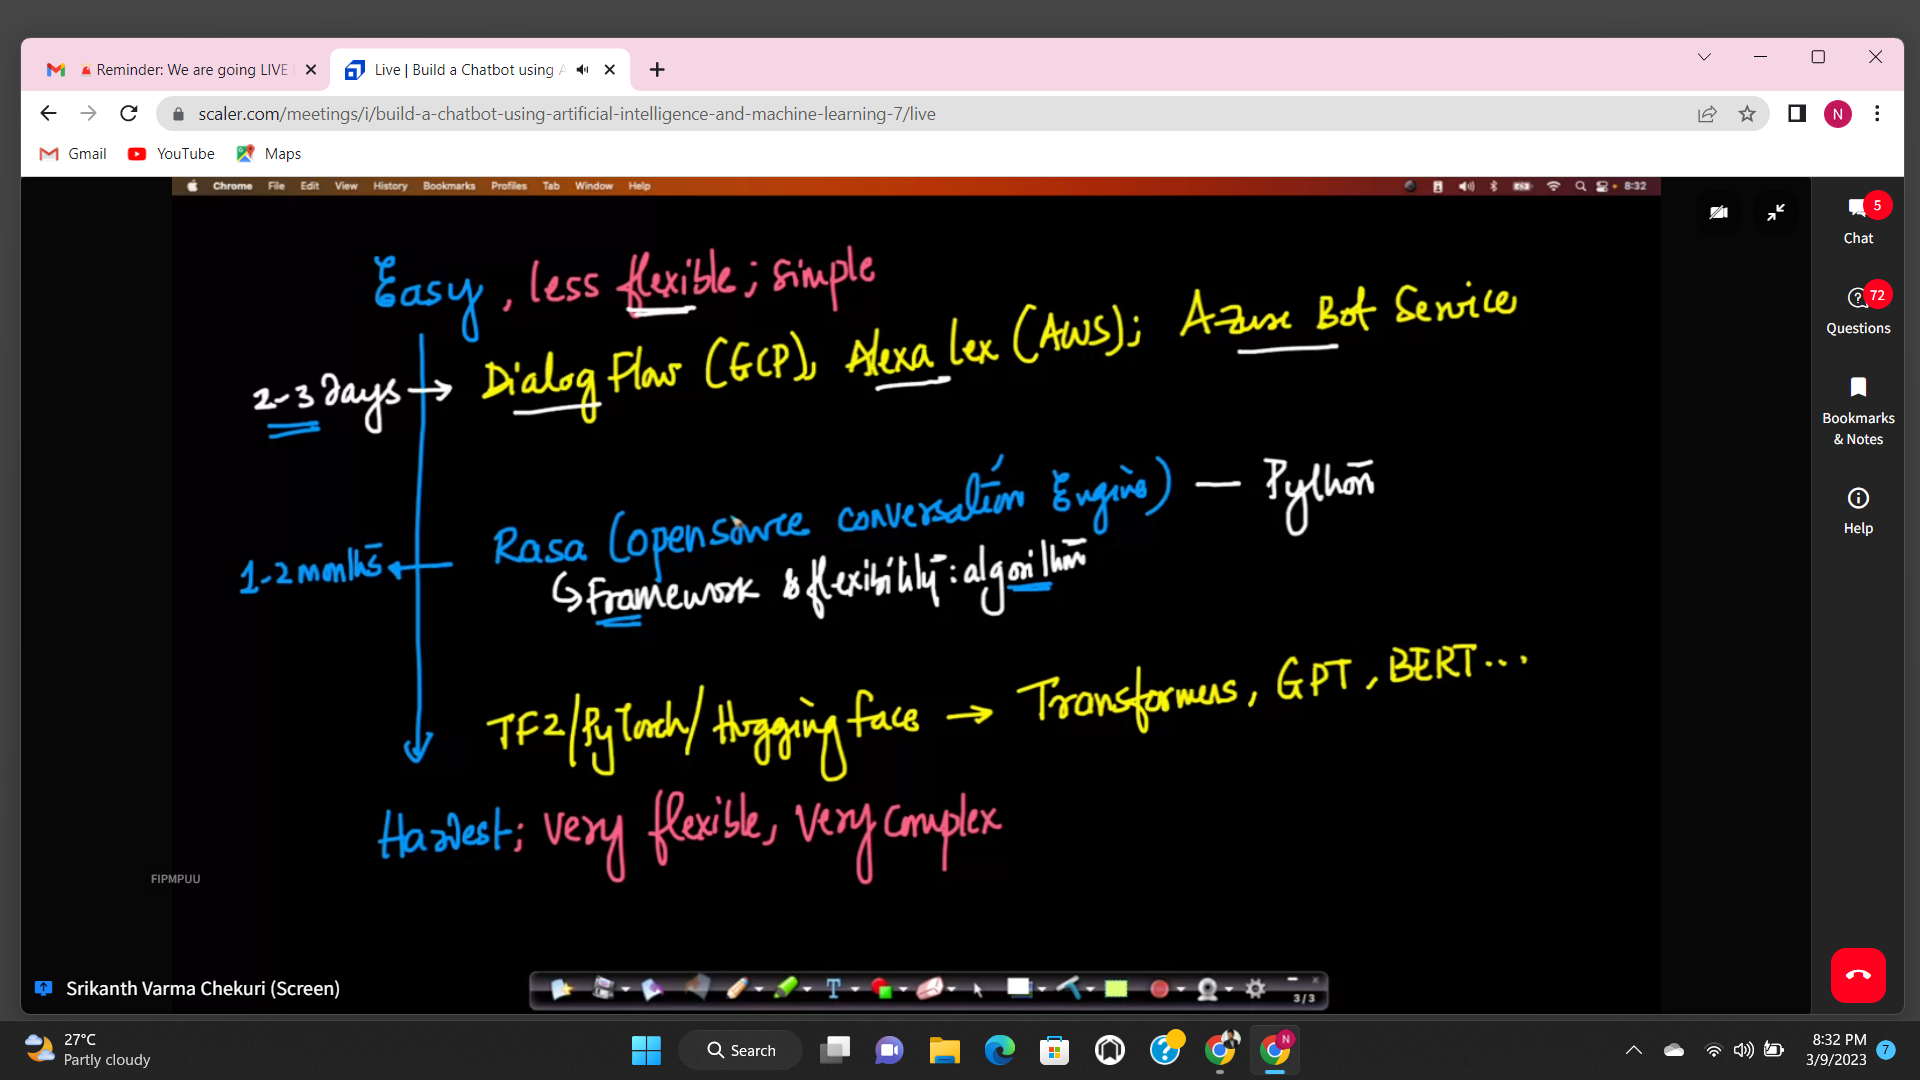 Reminder: We are going LIVE
Live | Build a Chatbot using A
scaler.com/meetings/i/build-a-chatbot-using-artificial-intelligence-and-machine-learning-7/live
N
Gmail YouTube Maps
Chrome File Edit View History Bookmarks Profiles Tab Window Help 8:32
5
Chat
72
Questions
Bookmarks
& Notes
Help
Easy, less flexible; simple
2-3 days → Dialog Flow (GCP), Alexa lex (AWS); Azure Bot Service
1-2 months ← Rasa (opensource conversation Engine) — Python
↳ Framework & flexibility: algorithm
TF2/PyTorch/Hugging face → Transformers, GPT, BERT...
Hardest; very flexible, very complex
FIPMPUU
Srikanth Varma Chekuri (Screen)
T
3/3
27°C
Partly cloudy
Search
N
8:32 PM
3/9/2023
7